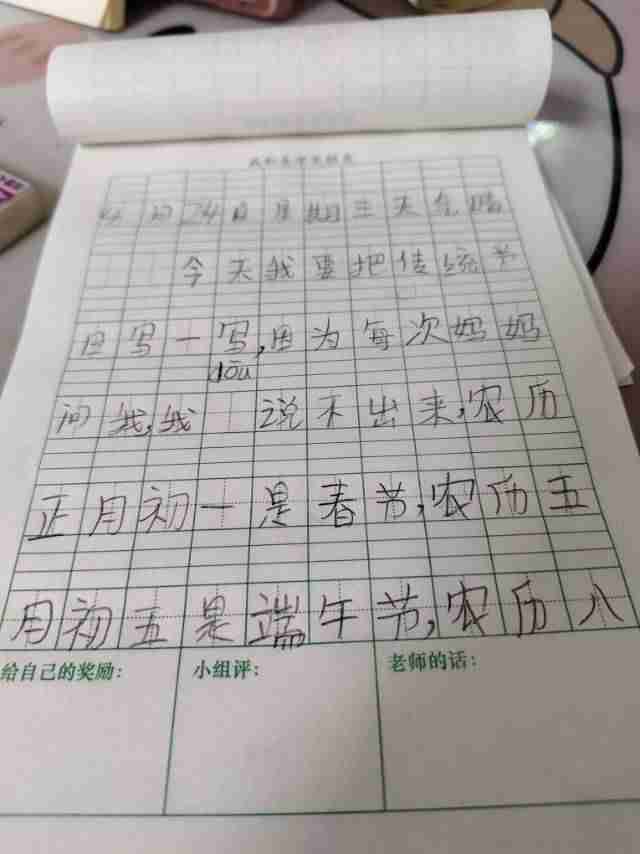 4月24日星期三天气晴
今天我要把传统节
日写一写,因为每次妈妈
dōu
问我,我 说不出来,农历
正月初一是春节,农历五
月初五是端午节,农历八
给自己的奖励: 小组评: 老师的话: